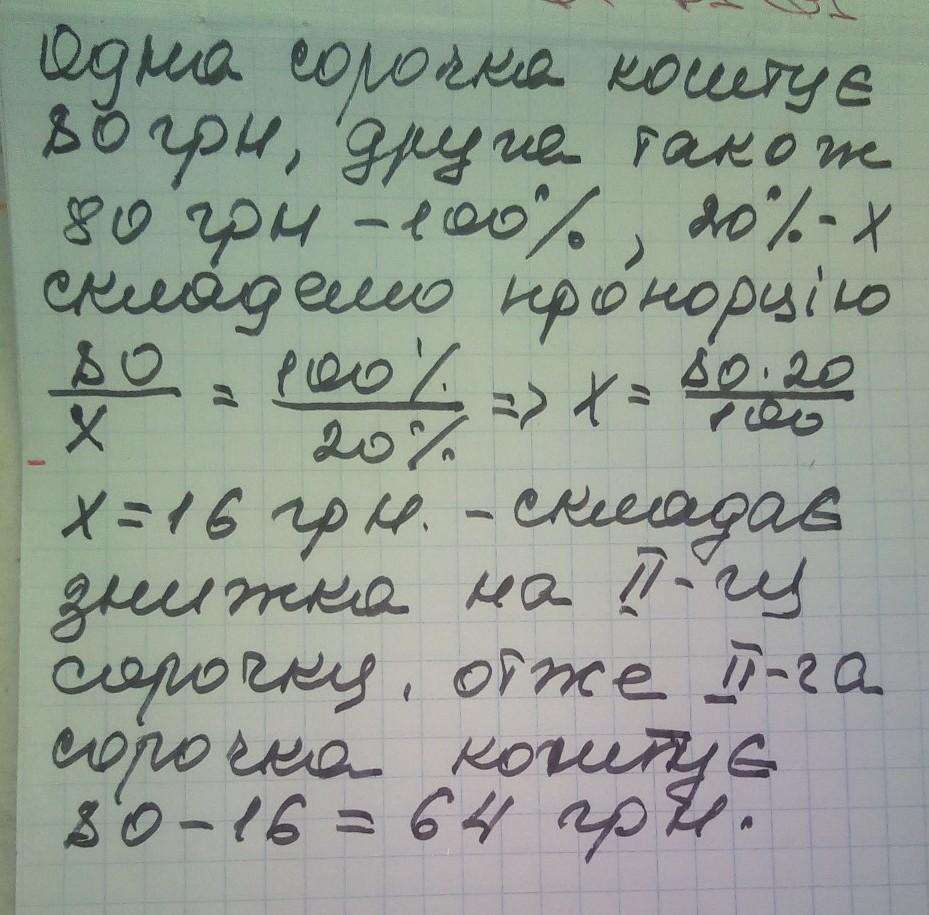 Одна сорочка коштує
80 грн, друга також
80 грн - 100%, 20% - x
складемо пропорцію
80/x = 100%/20% => x = 80·20/100
x = 16 грн. - складає
знижка на II-гу
сорочку, отже II-га
сорочка коштує
80 - 16 = 64 грн.